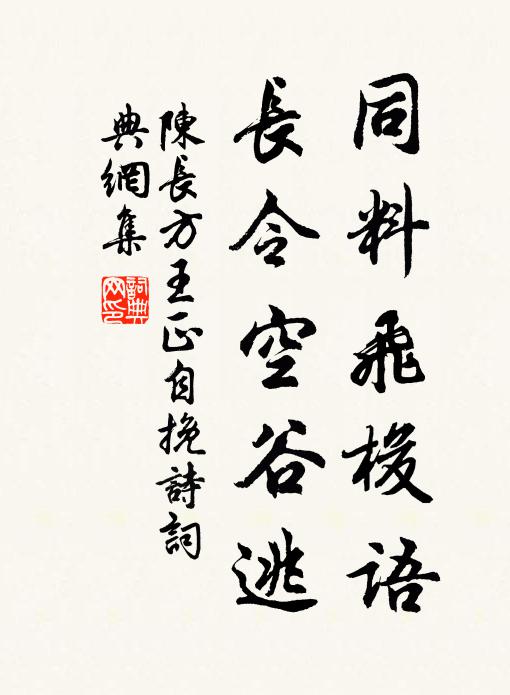 同料飛梭語
長令空谷逃
陳長方王正自挽詩詞
典網集
詞典
网印